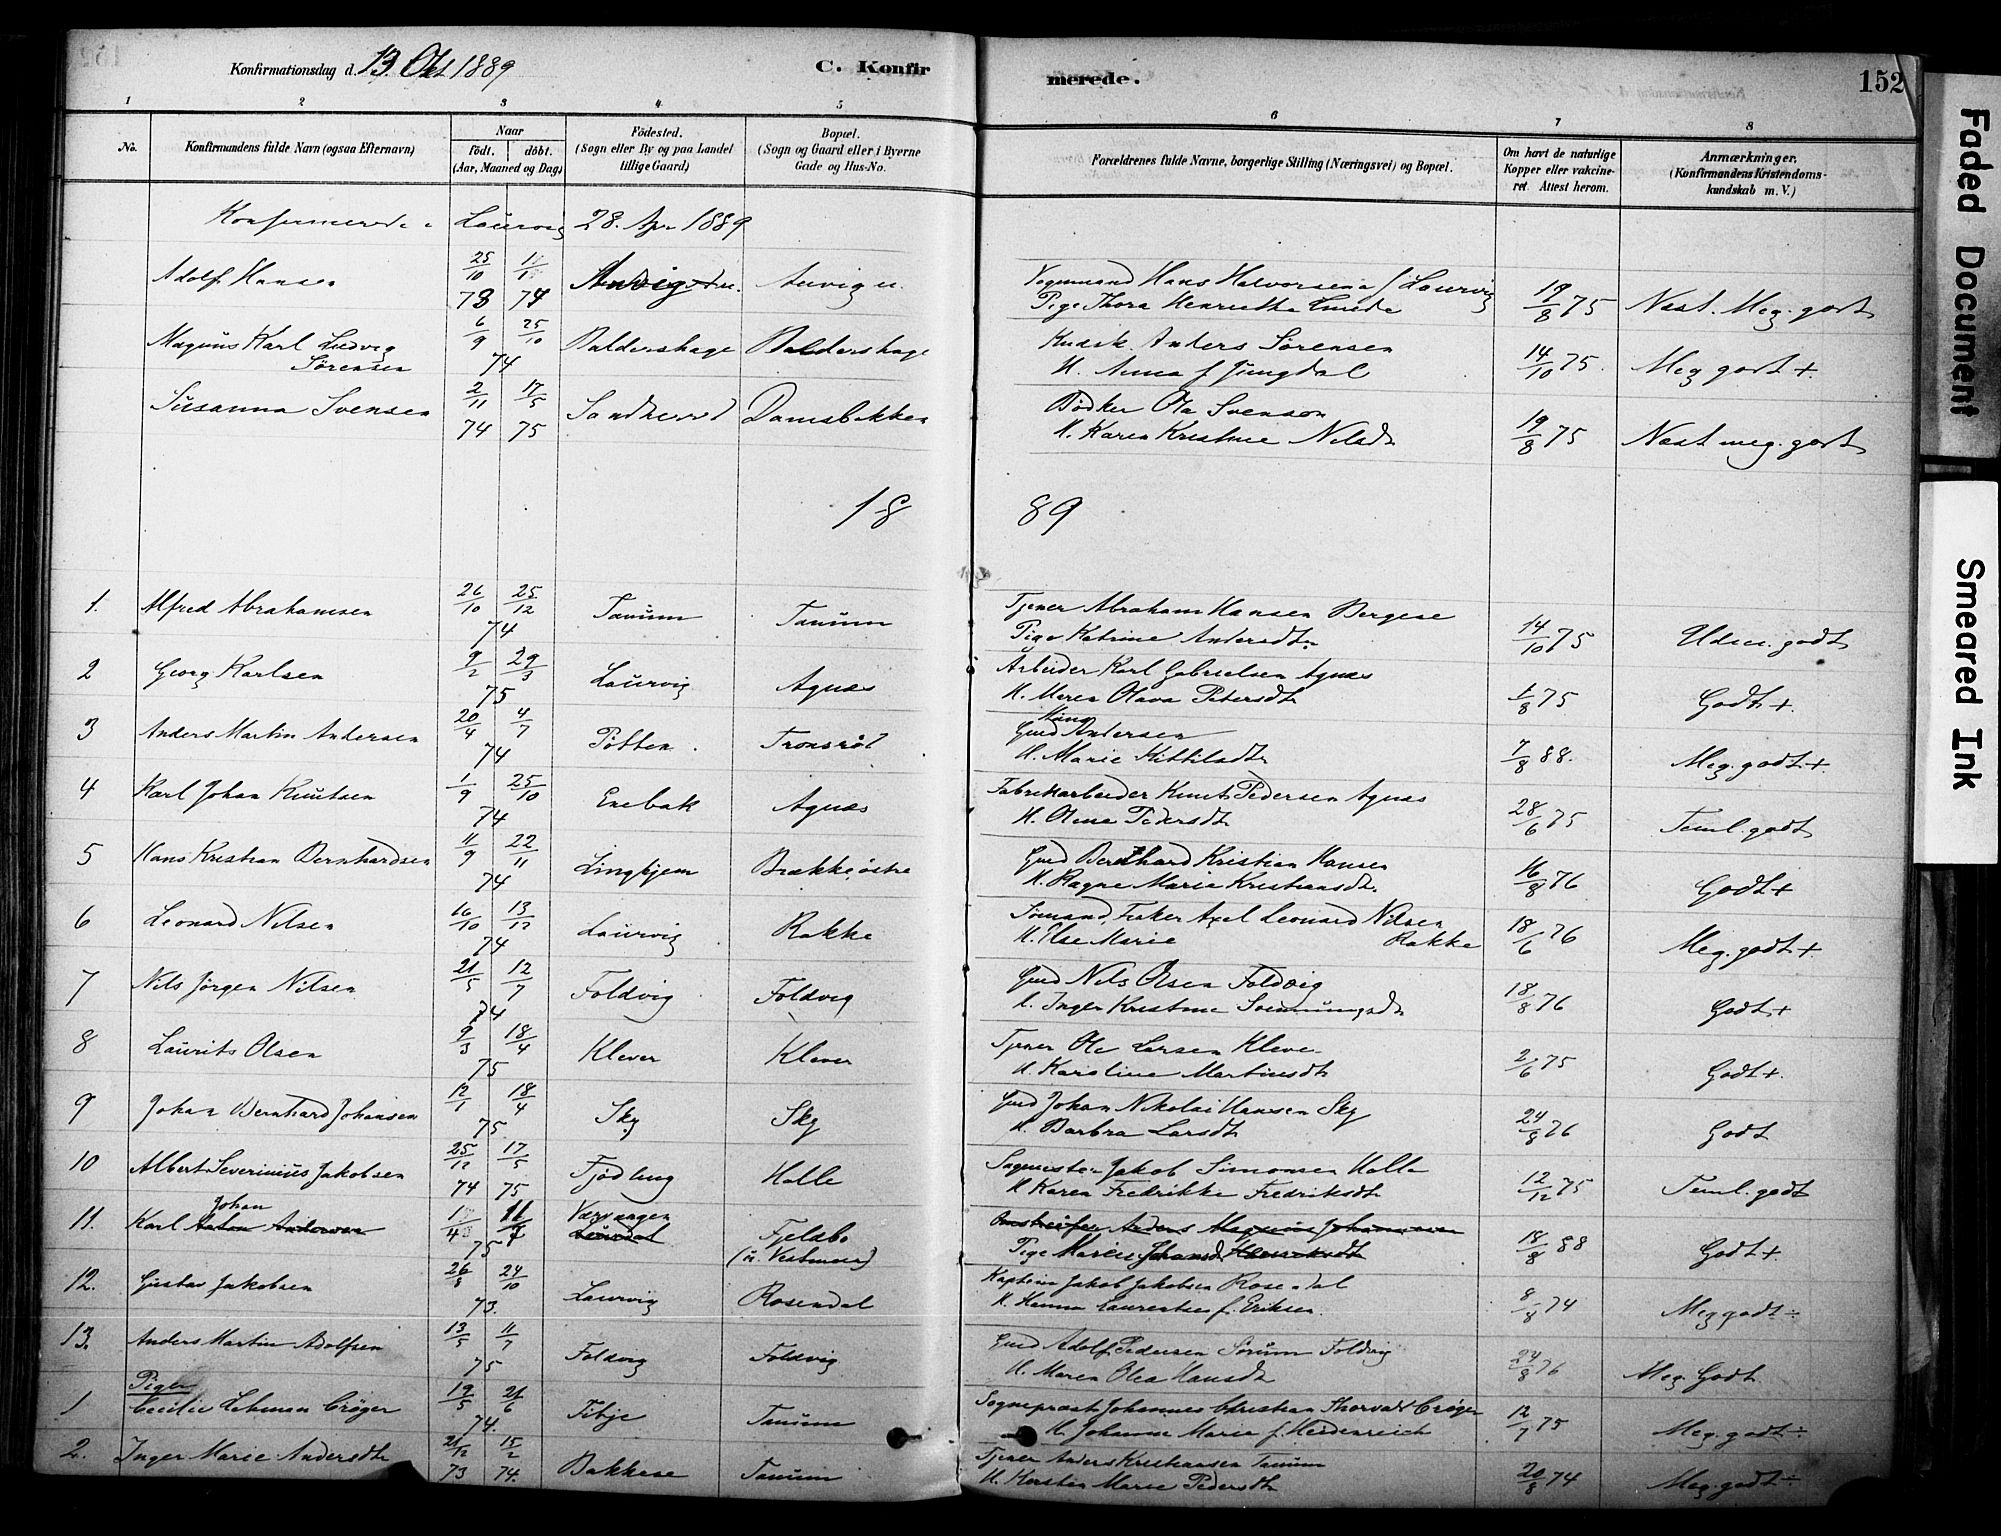 Konfirmationsdag d. 13. Okt 1889
C. Konfir
merede.
152
1 2 3 4 5 6 7 8
No.
Konfirmandens fulde Navn (ogsaa Efternavn)
Naar
födt. döbt.
(Aar, Maaned og Dag)
Födested.
(Sogn eller By og paa Landet
tillige Gaard)
Bopæl.
(Sogn og Gaard eller i Byerne
Gade og Hus-No.
Forældrenes fulde Navne, borgerlige Stilling (Næringsvei) og Bopæl.
Om havt de naturlige
Kopper eller vakcine-
ret. Attest herom.
Anmærkninger.
(Konfirmandens Kristendoms-
kundskab m. V.)
Konfirmerede i Laurvig 28. Apr 1889
Adolf Hansen 25/10 73 1/1 74 Anvig Anvig n. Vognmand Hans Halvorsen Laurvig 19/8 75 Næst. Meg. godt
Pige Thora Henriette
Magnus Karl Ludvig 6/9 25/10 Baldershage Baldershage Kudsk. Anders Sörensen 14/10 75. Meg godt +
Sörensen 74 H. Anna f. Jungdal
Susanna Svensen 2/11 74 17/5 75 Sandherred Damsbakken Bödker Ola Svenson 19/8 75 Næst meg. godt
H. Karen Kristine Nilsdt
1889
1. Alfred Abrahamsen 26/10 25/12 74 Tanum Tanum Tjener Abraham Hansen Bergene 14/10 75 Udm. godt
Pige Katrine Andersdt.
2 Georg Karlsen 9/2 29/3 75 Laurvig Agnæs Arbeider Karl Gabrielsen Agnæs 1/8 75 Godt +
H. Maren Olava Petersdt
3 Anders Martin Andersen 20/4 4/7 74 Pötten Tronsröd Gmd Andersen 7/8 88. Meg. godt +
H. Marie Kittilsdt
4 Karl Johan Knutsen 1/9 25/10 74 Enebak Agnæs Fabrikarbeider Knut Pedersen Agnæs 28/6 75 Teml. godt
H. Olena Pedersdt
5 Hans Kristian Bernhardsen 11/9 22/11 74 Linghjem Brække östre Gmd Bernhard Kristian Hansen 16/8 76 Godt +
H. Ragne Marie Kristiansdt.
6 Leonard Nilsen 16/10 13/12 74 Laurvig Rakke Sömand, Fisker Axel Leonard Nilsen 18/6 76 Meg. godt +
H. Else Marie Rakke
7 Nils Jörgen Nilsen 21/5 12/7 74 Foldvig Foldvig Gmd Nils Olsen Foldvig 18/8 76 Godt +
H. Inger Kristine
8 Laurits Olsen 9/3 18/4 75 Klever Klever Tjener Ole Larsen Kleve 2/6 75 Godt +.
H. Karoline Martinsdt
9 Johan Bernhard Johansen 12/1 18/4 75 Sky Sky Gmd Johan Nikolai Hansen Sky 24/8 76 Godt
H. Barbra Larsdt
10 Albert Severinius Jakobsen 25/12 74 17/5 75 Tjödling Halle Sagmester Jakob Simonsen Halle 12/12 75 Teml. godt
H Karen Fredrikke Fredriksdt
Johan
11. Karl Anton Andersen 75 Fjeldbo 18/8 88 Godt +
Pige Maren Johansd.
12. Gustav Jakobsen 26/8 24/10 73. Laurvig Rosendal Kaptein Jakob Jakobsen Rosendal 8/8 74 Meg godt ÷
H. Hanna Laurentine f. Eriksen.
13. Anders Martin Adolfsen 13/5 11/7 75 Foldvig Foldvig Gmd Adolf Pedersen Sörum Foldvig 24/8 76 Meg. Godt
H. Maren Olea Hansdt
Piger
1 Cecilie Lehman Cröger 19/5 21/6 74. Tibje Tanum Sogneprest Johannes Christian Thorvald Cröger 12/7 75 Meg. godt ÷
H. Johanne Marie f. Heidenreich
2. Inger Marie Andersdt 21/12 73 15/2 74. Bakkene Tanum Tjener Anders Kristiansen Tanum 20/8 74 Meg. godt ÷
H. Kirsten Marie Pedersdt
Faded Document
Smeared Ink